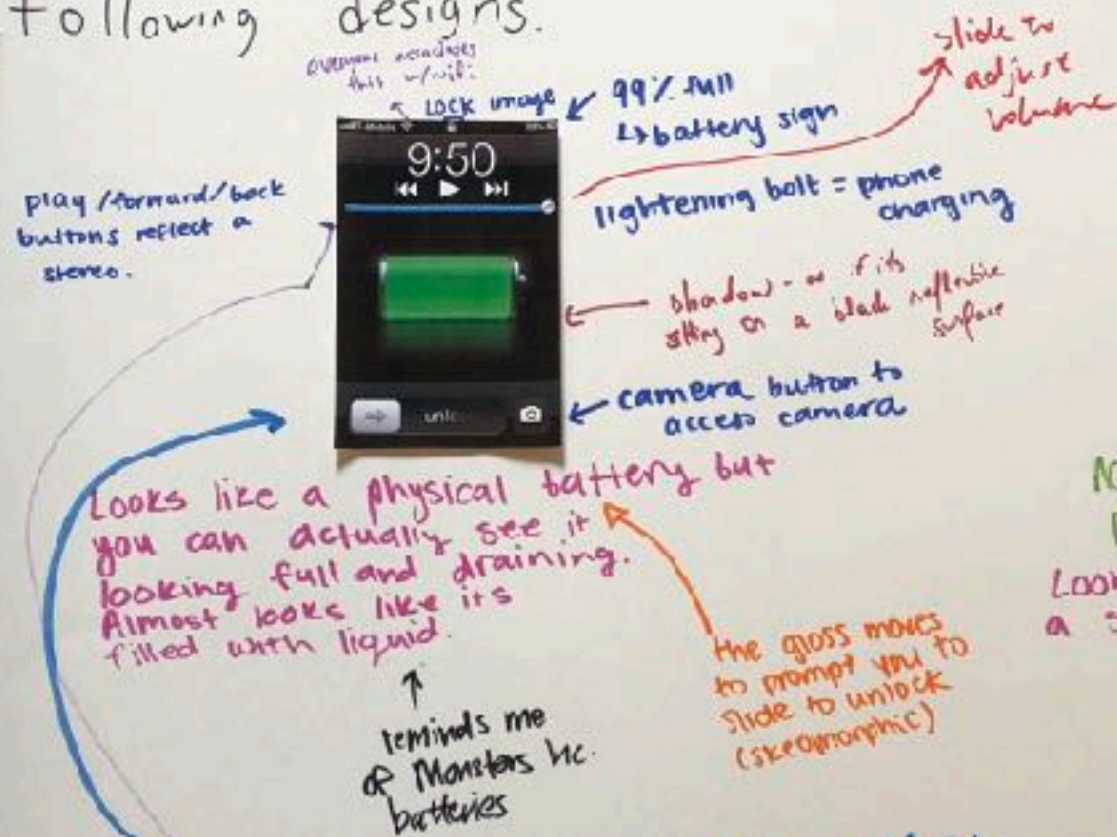 following designs.
everyone associates
this w/wifi
LOCK image
99% full
↳ battery sign
slide to
adjust
volume
9:50
play/forward/back
buttons reflect a
stereo.
lightening bolt = phone
charging
shadow - as if its
sitting on a black reflective
surface
unlo
camera button to
access camera
Looks like a physical battery but
you can actually see it
looking full and draining.
Almost looks like its
filled with liquid.
the gloss moves
to prompt you to
slide to unlock
(skeomorphic)
reminds me
of Monsters Inc.
batteries
Loo
a